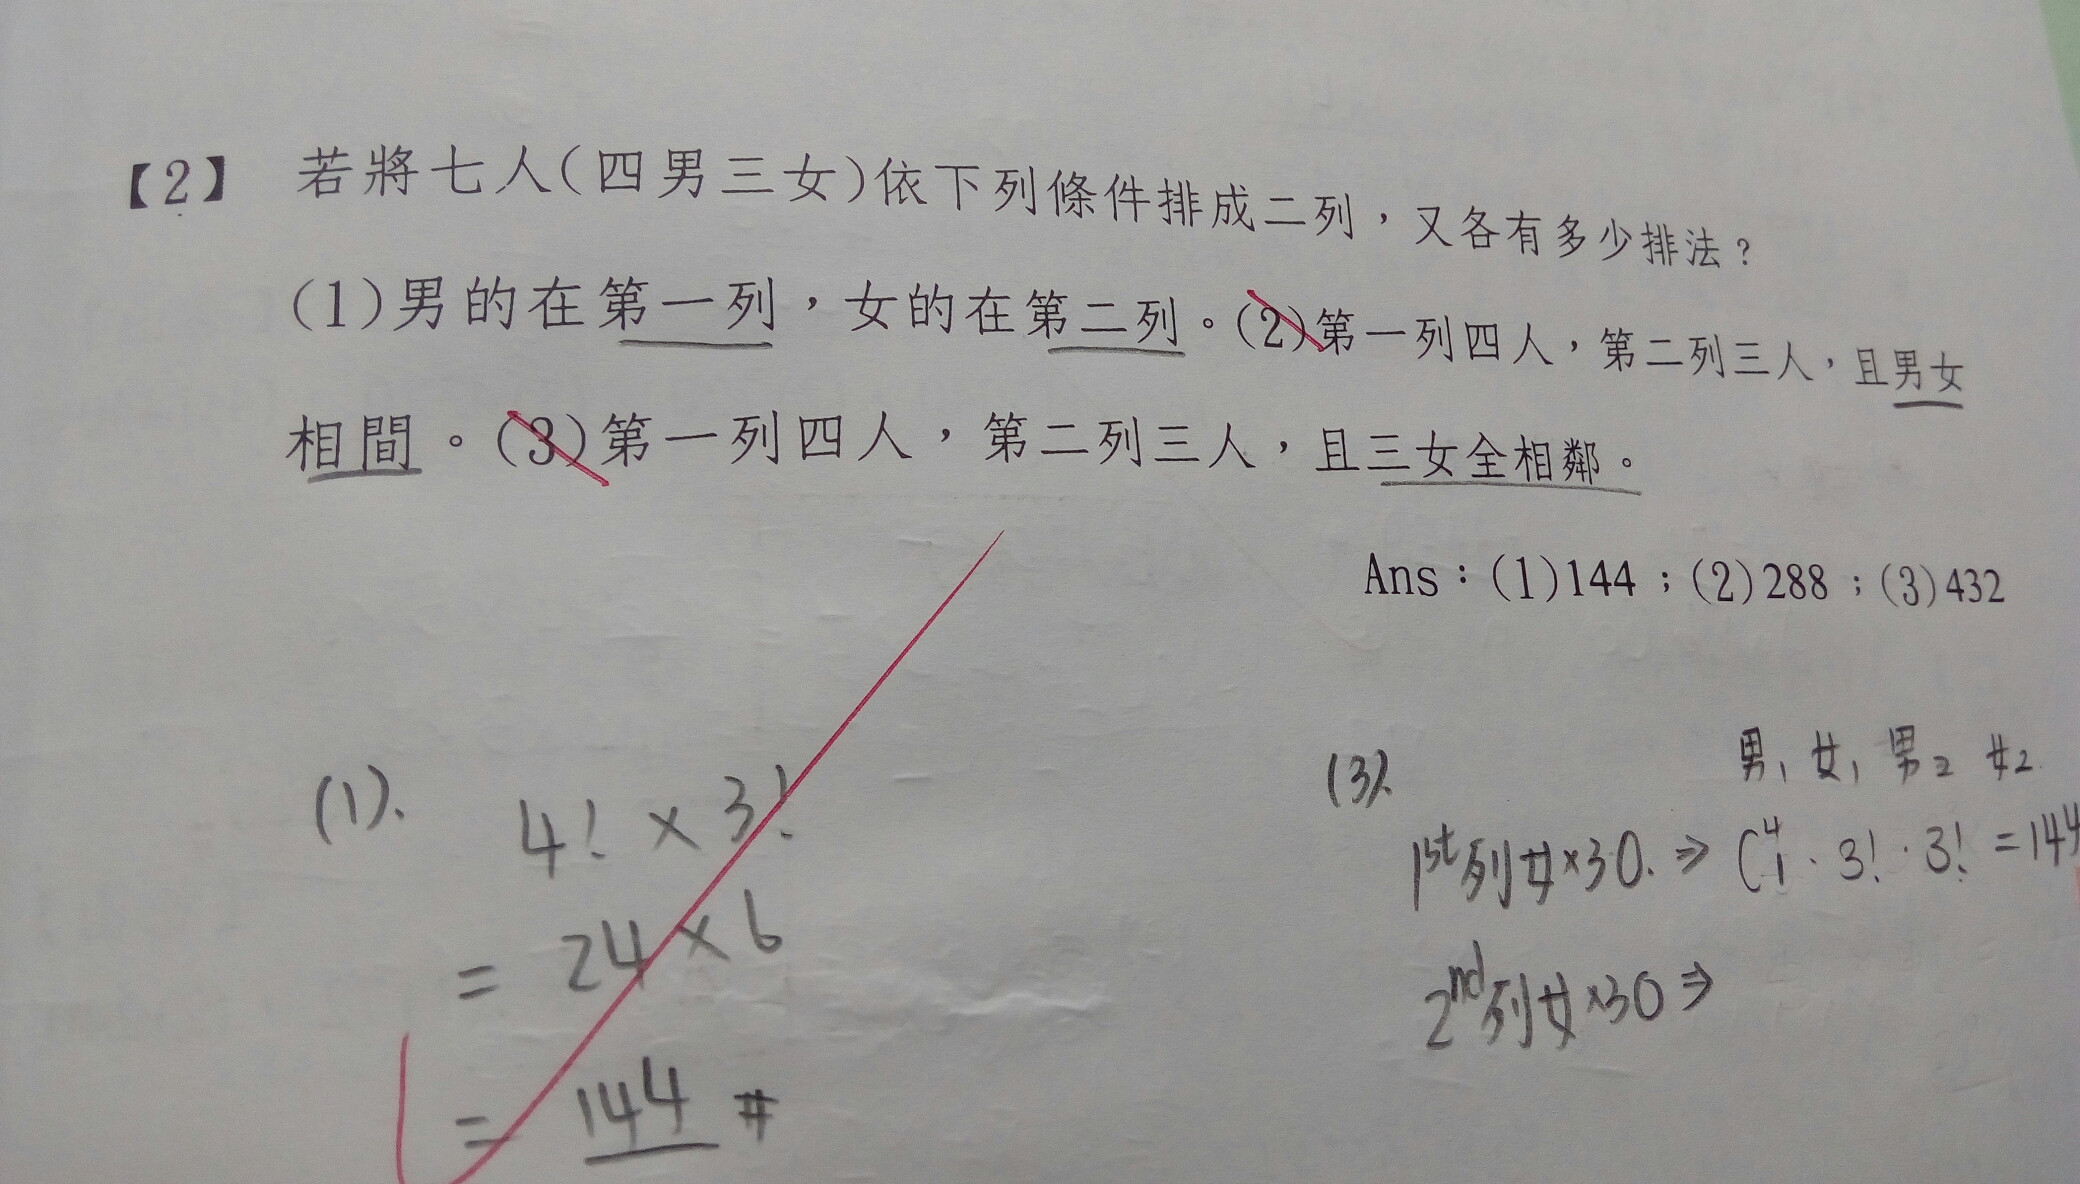 【2】 若將七人(四男三女)依下列條件排成二列，又各有多少排法？
(1)男的在第一列，女的在第二列。(2)第一列四人，第二列三人，且男女
相間。(3)第一列四人，第二列三人，且三女全相鄰。
Ans：(1)144；(2)288；(3)432
(1). 4! × 3!
= 24 × 6
= 144 #
(3). 男1 女1 男2 女2
1st列女×30. ⇒ C⁴₁ · 3! · 3! = 144
2nd列女×30 ⇒